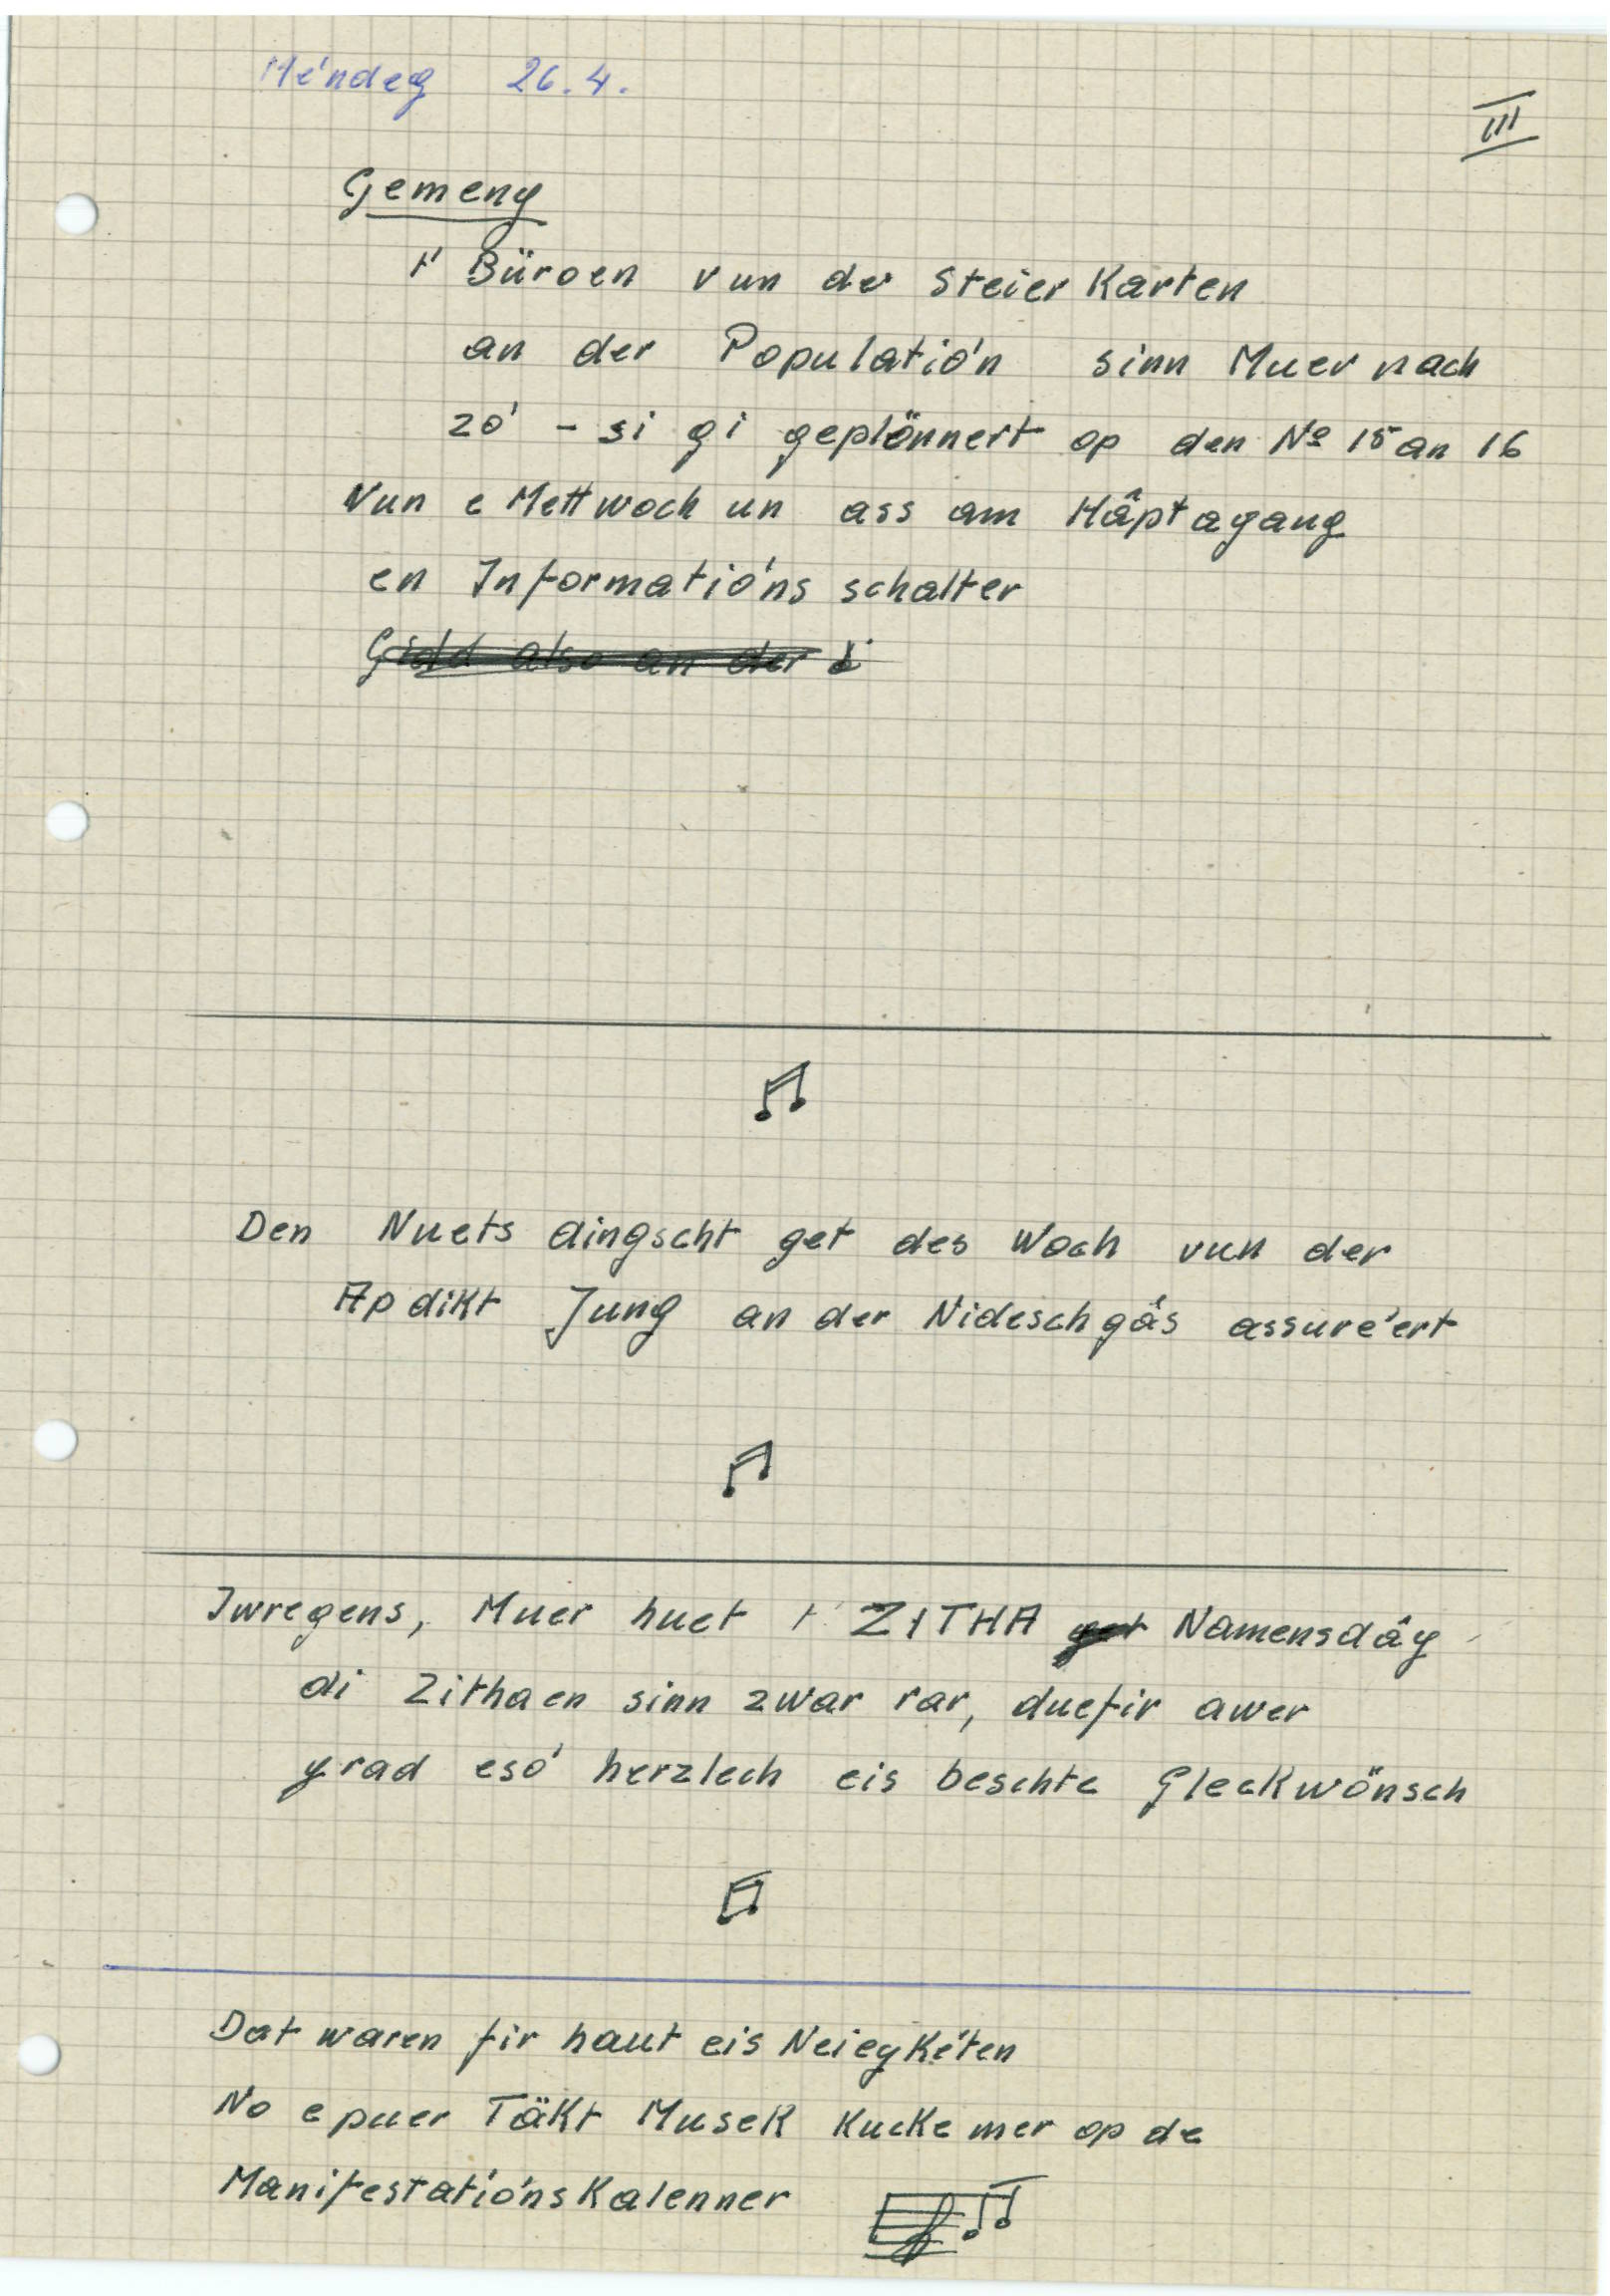 Mé'ndeg 26.4.
III
Gemeng
t' Büroen vun de Steier Karten
an der Populatió'n sinn Muer nach
zó' - si gi geplönnert op den No 15 an 16
Vun e Mettwoch un ass am Hâptagang
en Informatió'ns schalter
Gidd also an der
Den Nuets dingscht get des Woch vun der
Apdikt Jung an der Nideschgâs assuré'ert
Iwregens, Muer huet t' ZITHA get Namensdâg
di Zithaen sinn zwar rar, duefir awer
grad esó' herzlech eis beschte Gleckwönsch
Dat waren fir haut eis Neiegké'ten
No e puer Täkt Musek kucke mer op de
Manifestatió'nskalenner